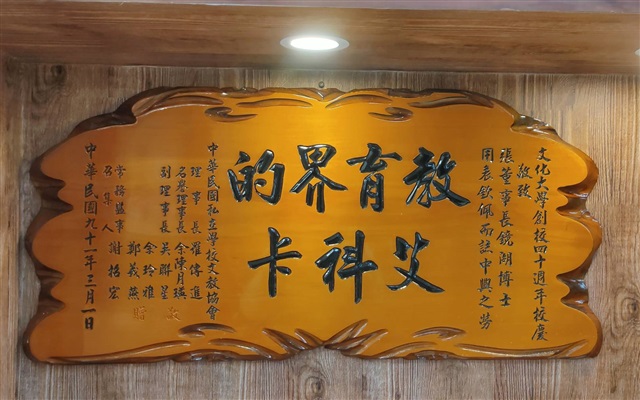 文化大學創校四十週年校慶
敬致
張董事長鏡湖博士
用表欽佩而誌中興之勞
教育界的
艾科卡
中華民國私立學校文教協會
理事長 羅傳進
名譽理事長 余陳月瑛
副理事長 吳聯星
余玲雅
鄭義燕
常務監事
召集人 謝招宏
敬贈
中華民國九十一年三月一日